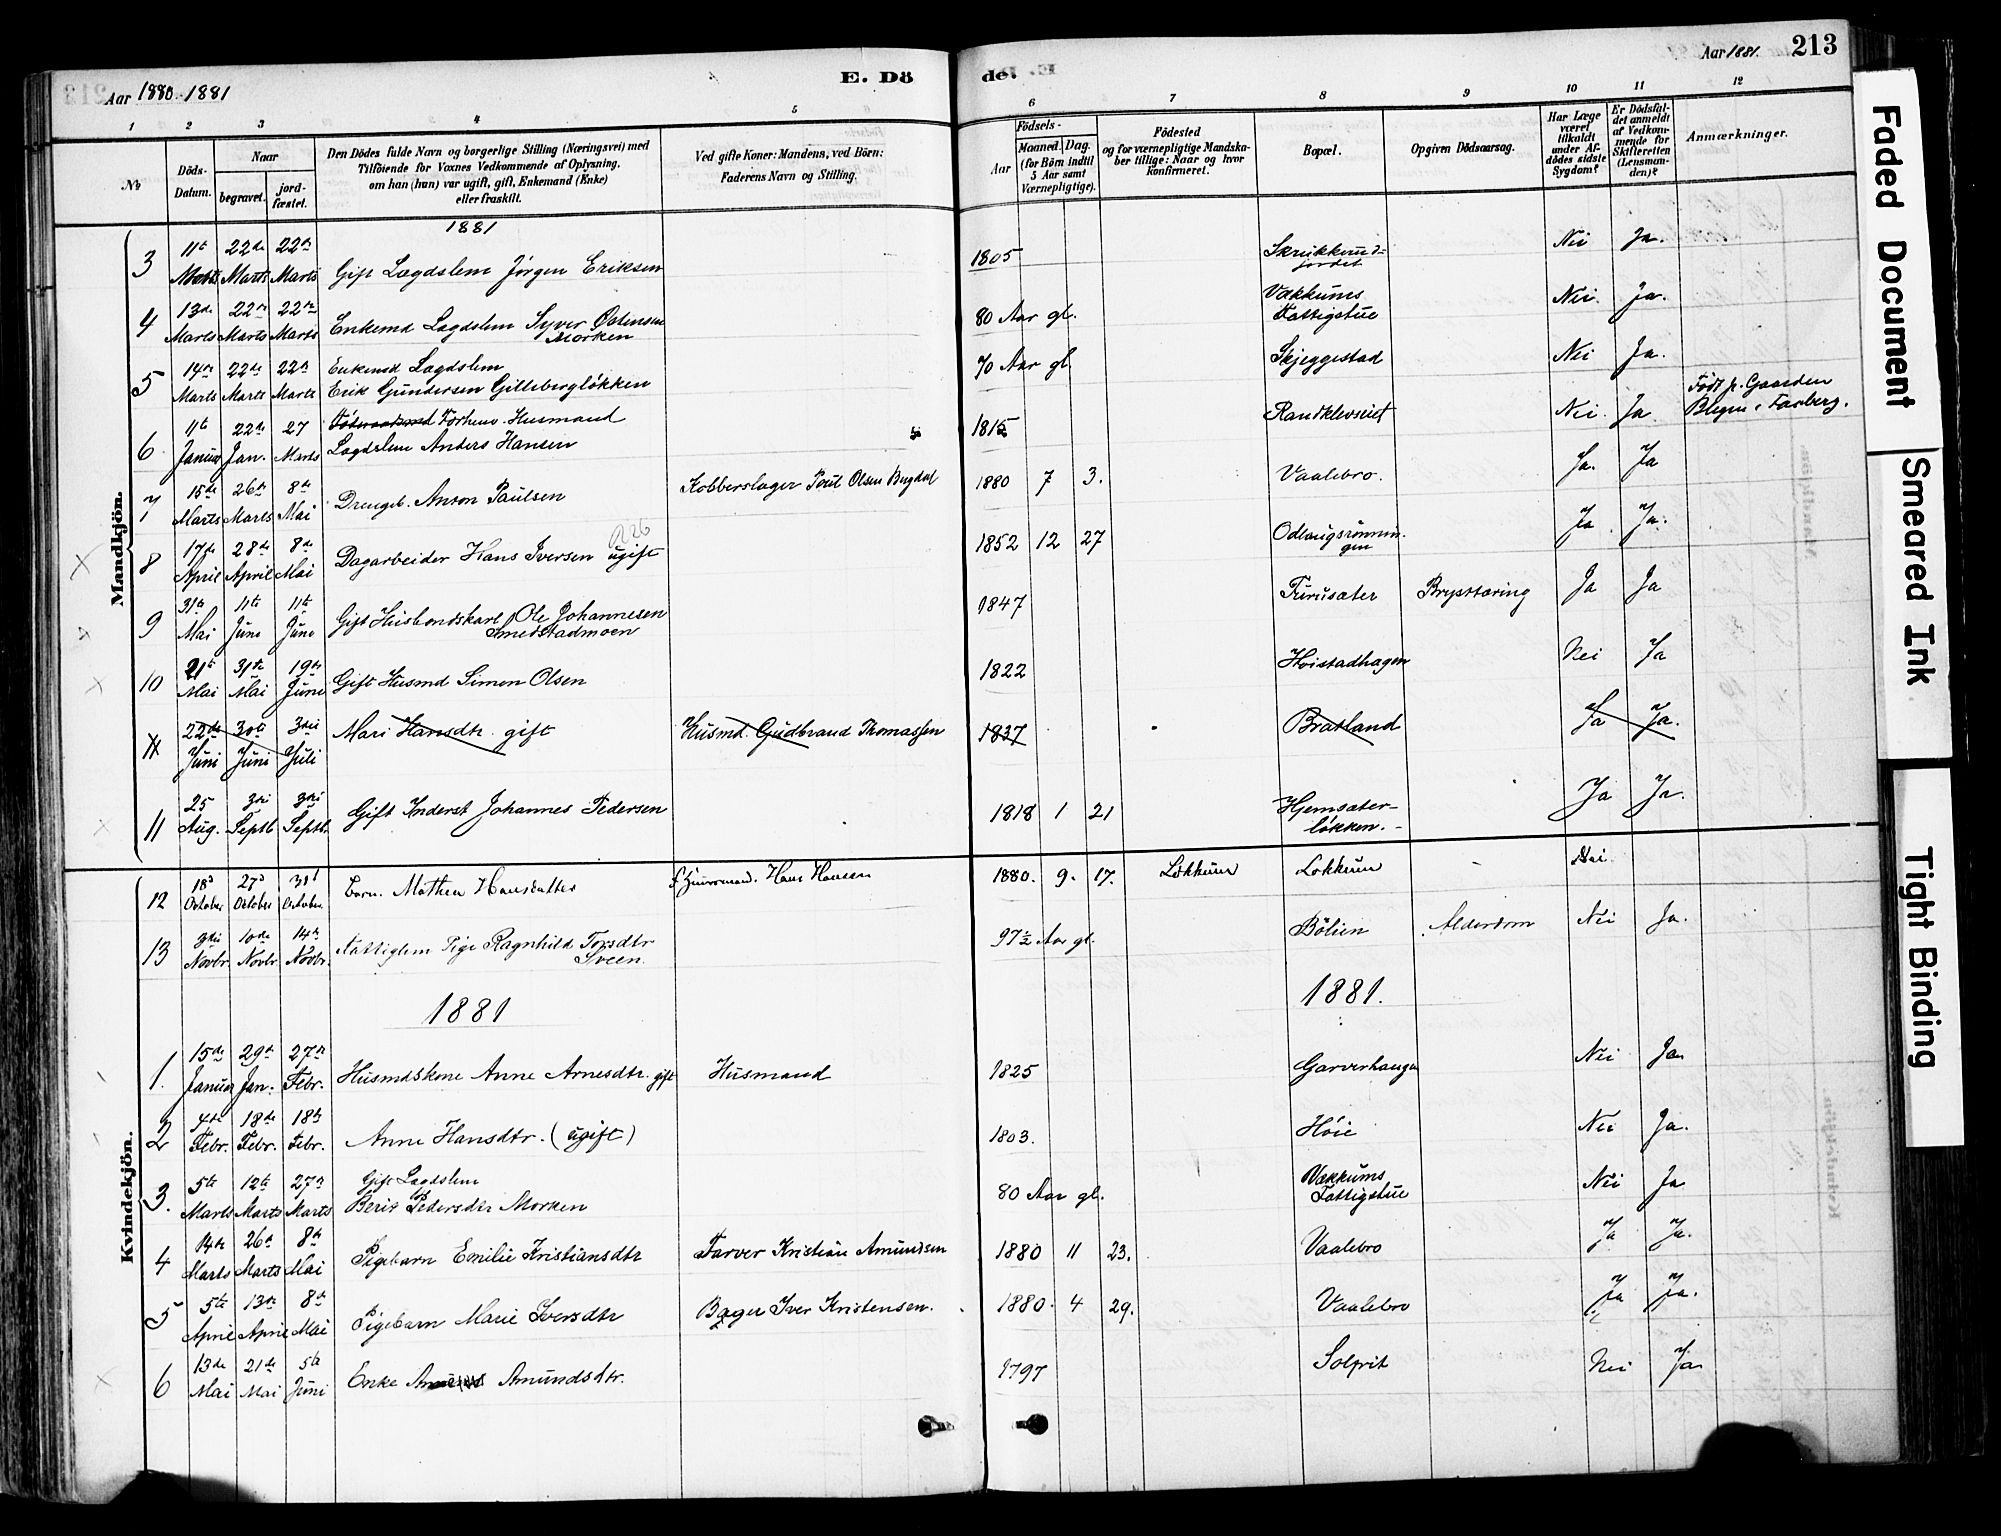 Aar 1880-1881
E. Dö
de.
Aar 1881.
213
1 2 3 4 5 6 7 8 9 10 11 12
No
Döds-
Datum.
Naar
begravet.
jord-
fæstet.
Den Dödes fulde Navn og borgerlige Stilling (Næringsvei) med
Tilföiende for Voxnes Vedkommende af Oplysning,
om han (hun) var ugift, gift, Enkemand (Enke)
eller fraskilt.
Ved gifte Koner: Mandens, ved Börn:
Faderens Navn og Stilling.
Födsels-
Aar
Maaned. Dag.
(for Börn indtil
5 Aar samt
Værnepligtige).
Födested
og for værnepligtige Mandska-
ber tillige: Naar og hvor
konfirmeret.
Bopæl.
Opgiven Dödsaarsag.
Har Læge
været
tilkaldt
under Af-
dödes sidste
Sygdom?
Er Dödsfal-
det anmeldt
af Vedkom-
mende for
Skifteretten
(Lensman-
den)?
Anmærkninger.
Mandkjön.
1881
3 11te Marts 22de Marts 22de Marts Gift Lægdslem Jørgen Eriksen 1805 Skrukkerud-
jordet Nei Ja.
4 13de Marts 22de Marts 22de Marts Enkemd Lagdslem Syver Østensen
Morken 80 Aar gl. Vakkums
Fattigstue Nei. Ja.
5 14de Marts 22de Marts 22de Marts Enkemd Lagdslem
Erik Gundersen Gillebergløkken 70 Aar gl. Skjeggestad Nei Ja.
6 11te Januar 22de Jan. 27 Marts Forhenv. Husmand
Lagdslem Anders Hansen 1815 Randklevseiet Nei. Ja Født p. Gaarden
Blegen i Faaberg.
7 15de Marts 26de Marts 8de Mai Drengeb. Anton Paulsen Kobberslager Poul Olsen Bugdal 1880 7 3. Vaalebro. Ja. Ja
8 17de April 28de April 8de Mai Dagarbeider Hans Iversen ugift 1852 12 27 Odlaugsrønnin-
gen Ja. Ja.
9 31te Mai 11te Juni 11te Juni Gift Husbondskarl Ole Johannesen
Smedstadmoen 1847 Furusæter Brysttæring Ja Ja
10 21te Mai 31te Mai 19de Juni Gift Husmd Simen Olsen 1822 Høistadhagen Nei Ja
11 22de Juni 30te Juni 3die Juli Mari Hansdtr. gift Husmd. Gudbrand Thomassen 1837 Bratland Ja Ja.
11 25 Aug. 3die Septb. 3die Septb. Gift Inderst Johannes Pedersen 1818 1 21 Hjemsæter-
løkken. Ja Ja.
Kvindekjön.
12 18d October 27d October 31t October Barn. Mathea Hansdatter Hans Hansen 1880. 9. 17. Løkkum Lokkum Nei.
13 3die Novbr. 10de Novbr. 14de Novbr. Fattiglem Pige Ragnhild Torsdtr
Sveen. 97½ Aar gl. Bölien Alderdom Nei Ja.
1881 1881.
1. 15de Januar 29de Jan. 27de Febr. Husmdskone Anne Arnesdtr. gift Husmand 1825 Garverhaugen Nei Ja.
2 4de Febr. 18de Febr. 18de Febr. Anne Hansdtr. (ugift) 1803. Høie Nei Ja.
3. 5te Marts 12te Marts 27de Marts Gift Lagdslem
Berit Pedersdtr Morken 80 Aar gl. Vakkums
Fattigstue Nei Ja
4 14de Marts 26de Marts 8de Mai Pigebarn Emilie Kristiansdtr Farver Kristian Amundsen 1880 11 23. Vaalebro Ja Ja.
5 5te April 13de April 8de Mai Pigebarn Marie Iversdtr Bager Iver Kristensen. 1880. 4 29. Vaalebro Ja Ja.
6 13de Mai 21de Mai 5te Juni Enke Amundsdtr. 1797 Solprit Nei Ja
Faded Document
Smeared Ink
Tight Binding